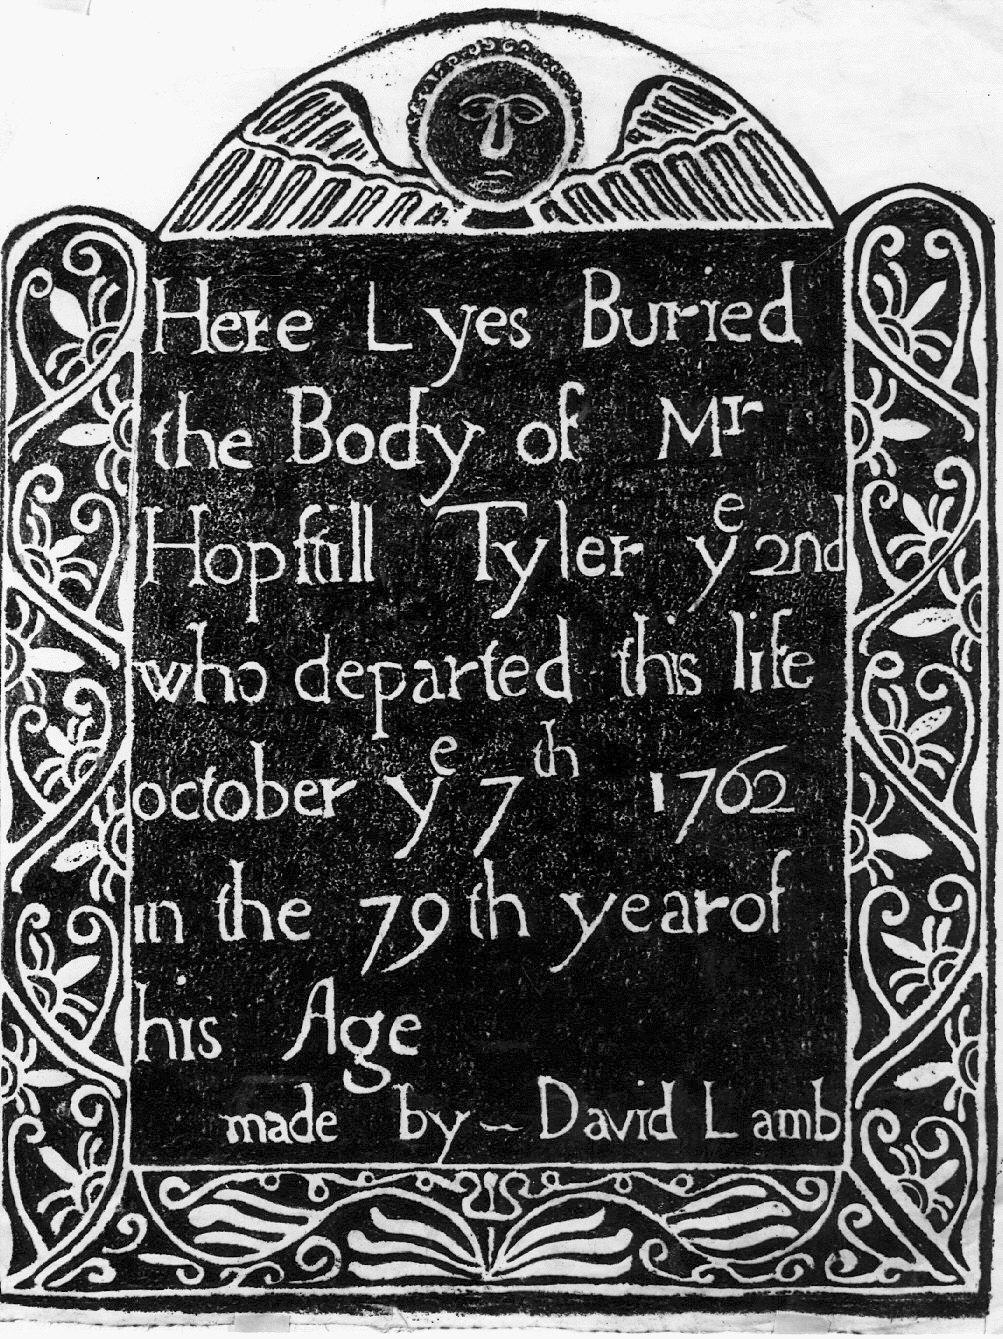 Here Lyes Buried
the Body of Mr
Hopſtill Tyler yͤ 2nd
who departed this life
october yͤ 7th 1762
in the 79th year of
his Age
made by ~ David Lamb